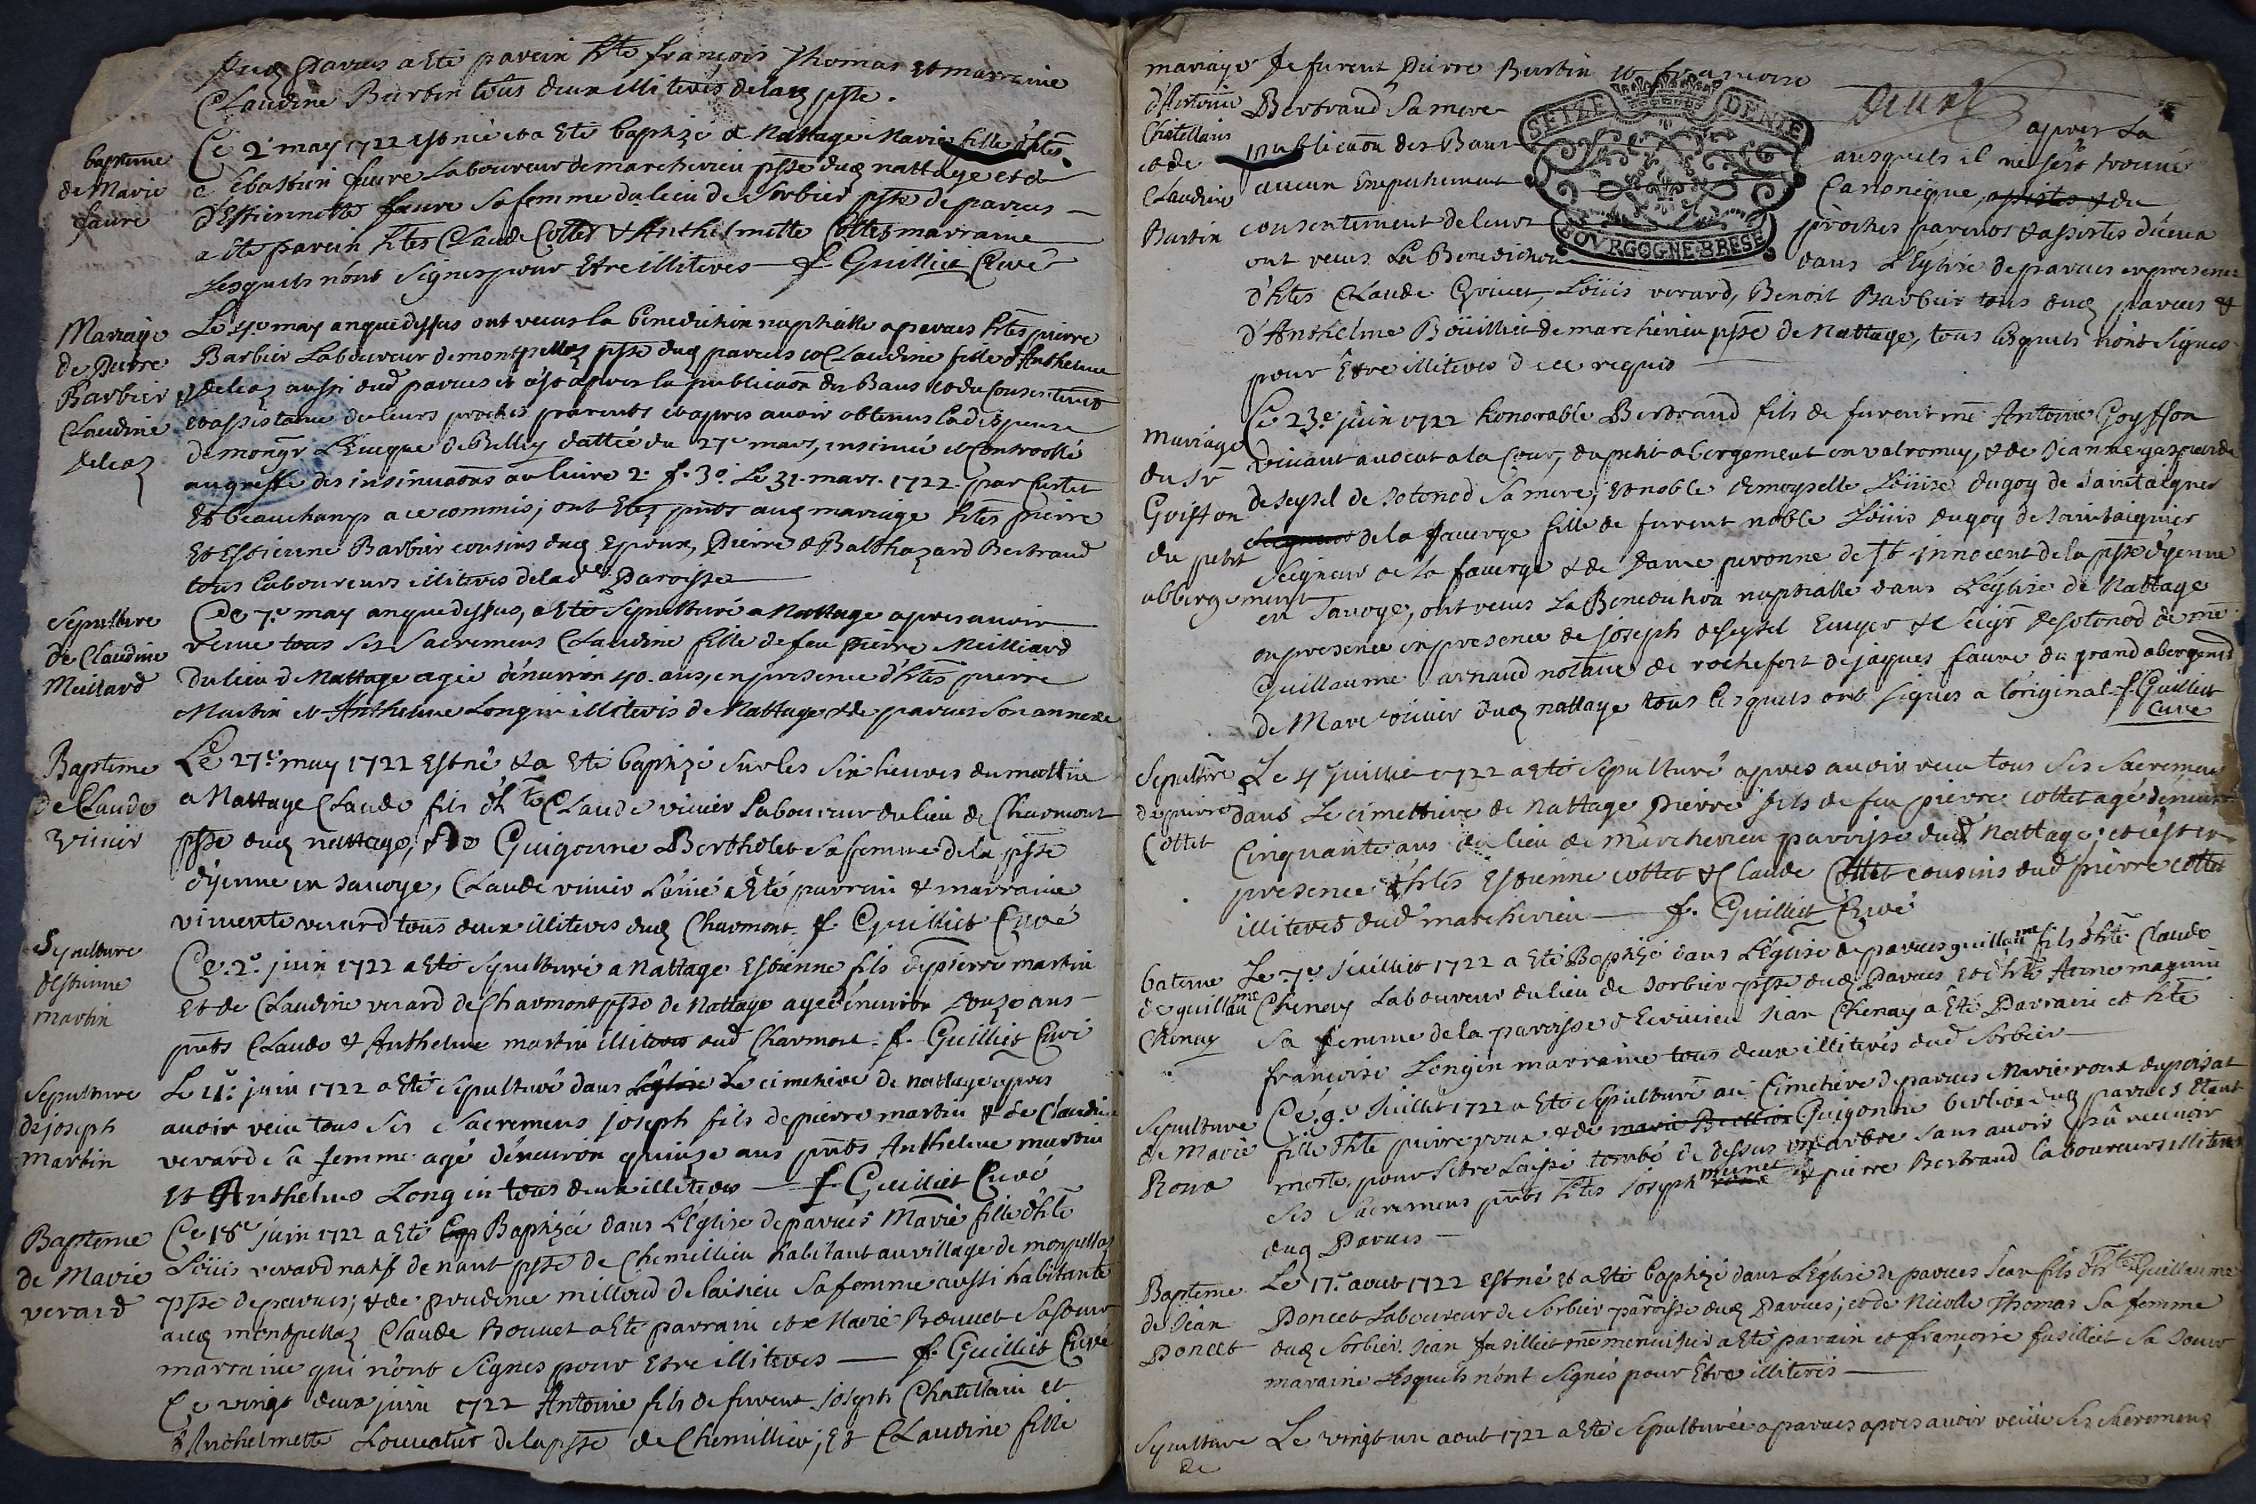 dud parves a eté parein hte françois Thomas et marraine
Claudine Burtin tous deux illiteres de lad psse.
Bapteme
de Marie
faure
Ce 2e may 1722 est née et a eté baptizé a Nattage Marie fille d'htes
Sebastien faure Laboureur de marcherieu psse dud nattage et d
d'Estiennette faure sa femme du lieu de Sorbier psse de parves
a eté parein htes Claude Cottet & Anthelmette Cottet marraine
Lesquels n'ont signes pour Etre illiteres f. Guilliet Curé
Mariage
de Pierre
Barbier &
Claudine
deleaz
Le 4e may an que dessus ont receus la benediction nuptialle a parves htes pierre
Barbier Laboureur de montpellaz psse dud parves et Claudine fille d'Anthelme
deleaz aussi dud parves et c'est apres la publicaon des Bans et du consentement
et assistance de leurs proches parents et apres avoir obtenus la dispense
de mongr L'Eveque de Belley dattée du 27e mars, insinué et Controollé
au greffe des insinuaons au livre 2. f. 3o. Le 31. mars. 1722. par Curtet
et beauchamp a ce commis; ont Etez pnts aud mariage htes pierre
Et Estienne Barbier cousins dud Epoux, Pierre & Balthazard Bertrand
tous laboureurs illiteres de lad Paroisse
Sepulture
de Claudine
Meillard
Ce 7e may an que dessus, a eté Sepulturé a Nattage apres avoir
receue tous ses Sacremens Claudine fille de feu Pierre Meilliard
du lieu de Nattage agée d'environ 40. ans, en presence d'htes pierre
Martin et Anthelme Longin illiteres de Nattage & de parves son annexe
Bapteme
de Claude
vivier
Le 27e may 1722 Est né & a Eté baptizé sur les six heures du mattin
a Nattage Claude fils d'hte Claude vivier Laboureur du lieu de Charmont
psse dud nattage, & de Guigonne Bertholet sa femme de la psse
d'yenne en Savoye, Claude vivier L'ainé a Eté parrain & marraine
vincente verard tous deux illiteres dud Charmont. f. Guilliet Curé
Sepulture
d'Estienne
martin
Ce. 2e. juin 1722 a Eté Sepulturé a Nattage Estienne fils de pierre martin
Et de Claudine verard de Charmont psse de Nattage agé d'environ douze ans
pnts Claude & Anthelme martin illiteres dud Charmont. f. Guilliet Curé
Sepulture
de joseph
martin
Le 11e juin 1722 a Eté Sepulturé dans L'église Le cimetiere de nattage apres
avoir receu tous ses Sacremens joseph fils de pierre martin & de Claudine
verard sa femme agé d'environ quinze ans pnts Anthelme martin
Et Anthelme Longin tous deux illiteres f. Guilliet Curé
Bapteme
de Marie
verard
Ce 18e juin 1722 a Eté Bap Baptizée dans L'Eglise de parves Marie fille d'hte
Loüis verard natif de nant psse de Chemillieu habitant au village de monpellaz
psse de parves; & de prudence milloud de laisieu sa femme aussi habitante
aud montpellaz Claude Bouvet a Eté parrain et Marie Bouvet sa soeur
marraine qui n'ont signes pour Etre illiteres f. Guilliet Curé
Ce vingt deux juin 1722 Antoine fils de furent joseph Chatellain et
d'Anthelmette Louvatiere de la psse de Chemillieu; Et Claudine fille
mariage
d'Antoine
Chatellain
et de
Claudine
Burtin
de furent Pierre Burtin et françoise
Bertrand sa mere apres la
publicaon des Bans ausquels il ne s'est trouvé
aucun Empechement Canonique, assistes & du
consentement de leurs proches parents & assistes d'iceux
ont receus La Benediction dans L'Eglise de parves en presence
SEIZE DENIE
BOVRGOGNE-BRESE
d'htes Claude Grivet, Loüis verard, Benoit Barbier tous dud parves &
d'Anthelme Boüilliet de marcherieu psse de Nattage, tous lesquels n'ont signes
pour Etre illiteres de ce requis
Mariage
du Sr
Goiffon
du petit
abbergement
Ce 23e. juin 1722 honorable Bertrand fils de furent me Antoine Goyffon
vivant avocat a la Cour, du petit abergement en valromey, & de Jeanne gasparde
de Seysel de Sotonod sa mere; et noble demoyselle Loüise dugoy de Saintaigner
de la faverge fille de furent noble Loüis dugoy de Saintaigner
Seigneur de la faverge & de Dame peronne de St innocent de la psse d'yenne
en Savoye, ont receus La Benediction nuptialle dans L'église de Nattage
en presence de joseph de Seysel Ecuyer & Seigr de Sotonod de me
Guillaume arnaud notaire de rochefort de jaques faure du grand abergement
de Marc vivier dud nattage tous lesquels ont signes a l'original f. Guilliet
Curé
Sepulture
de pierre
Cottet
Le 4e Juilliet 1722 a Eté Sepulturé apres avoir receu tous ses Sacremens
dans Le cimettiere de Nattage Pierre fils de feu pierre cottet agé d'environ
Cinquante ans du lieu de Marcherieu parroisse dud Nattage; et c'est en
presence d'htes Estienne cottet & Claude Cottet cousins dud pierre cottet
illiteres dud marcherieu f. Guilliet Curé
bateme
de guillaume
Chenay
Le 7e Juilliet 1722 a Eté Baptizé dans L'Eglise de parves guillaume fils d'hte Claude
Chenay Laboureur du lieu de Sorbier psse dud Parves et d'hte Anne magnin
sa femme de la parroisse d'Ecrivieu jean Chenay a Eté Parrain et hte
françoise Longin marraine tous deux illiteres dud Sorbier
Sepulture
de Marie
Roux
Ce. 9.e Juillet 1722 a Eté Sepulturé au Cimetiere de parves Marie roux du poisat
fille d'hte pierre roux & de Guigonne berlion dud parves Etant
morte pour S'etre laissé tombé de dessus un arbre sans avoir pû recevoir
ses Sacremens pnts htes joseph munet & pierre Bertrand laboureurs illiteres
dud Parves
Bapteme
de Jean
Poncet
Le 17e. aout 1722 Est né et a Eté baptizé dans L'Eglise de parves Jean fils d'hte Guillaume
Poncet Laboureur de Sorbier paroisse dud Parves; et de Nicolle Thomas sa femme
dud Sorbier Jean fusilliet me menuisier a Eté parain et françoise fusilliet sa soeur
maraine Lesquels n'ont signés pour Etre illiterés
Sepulture
de
Le vingt un aout 1722 a Eté Sepulturée a parves apres avoir receüe ses Sacremens